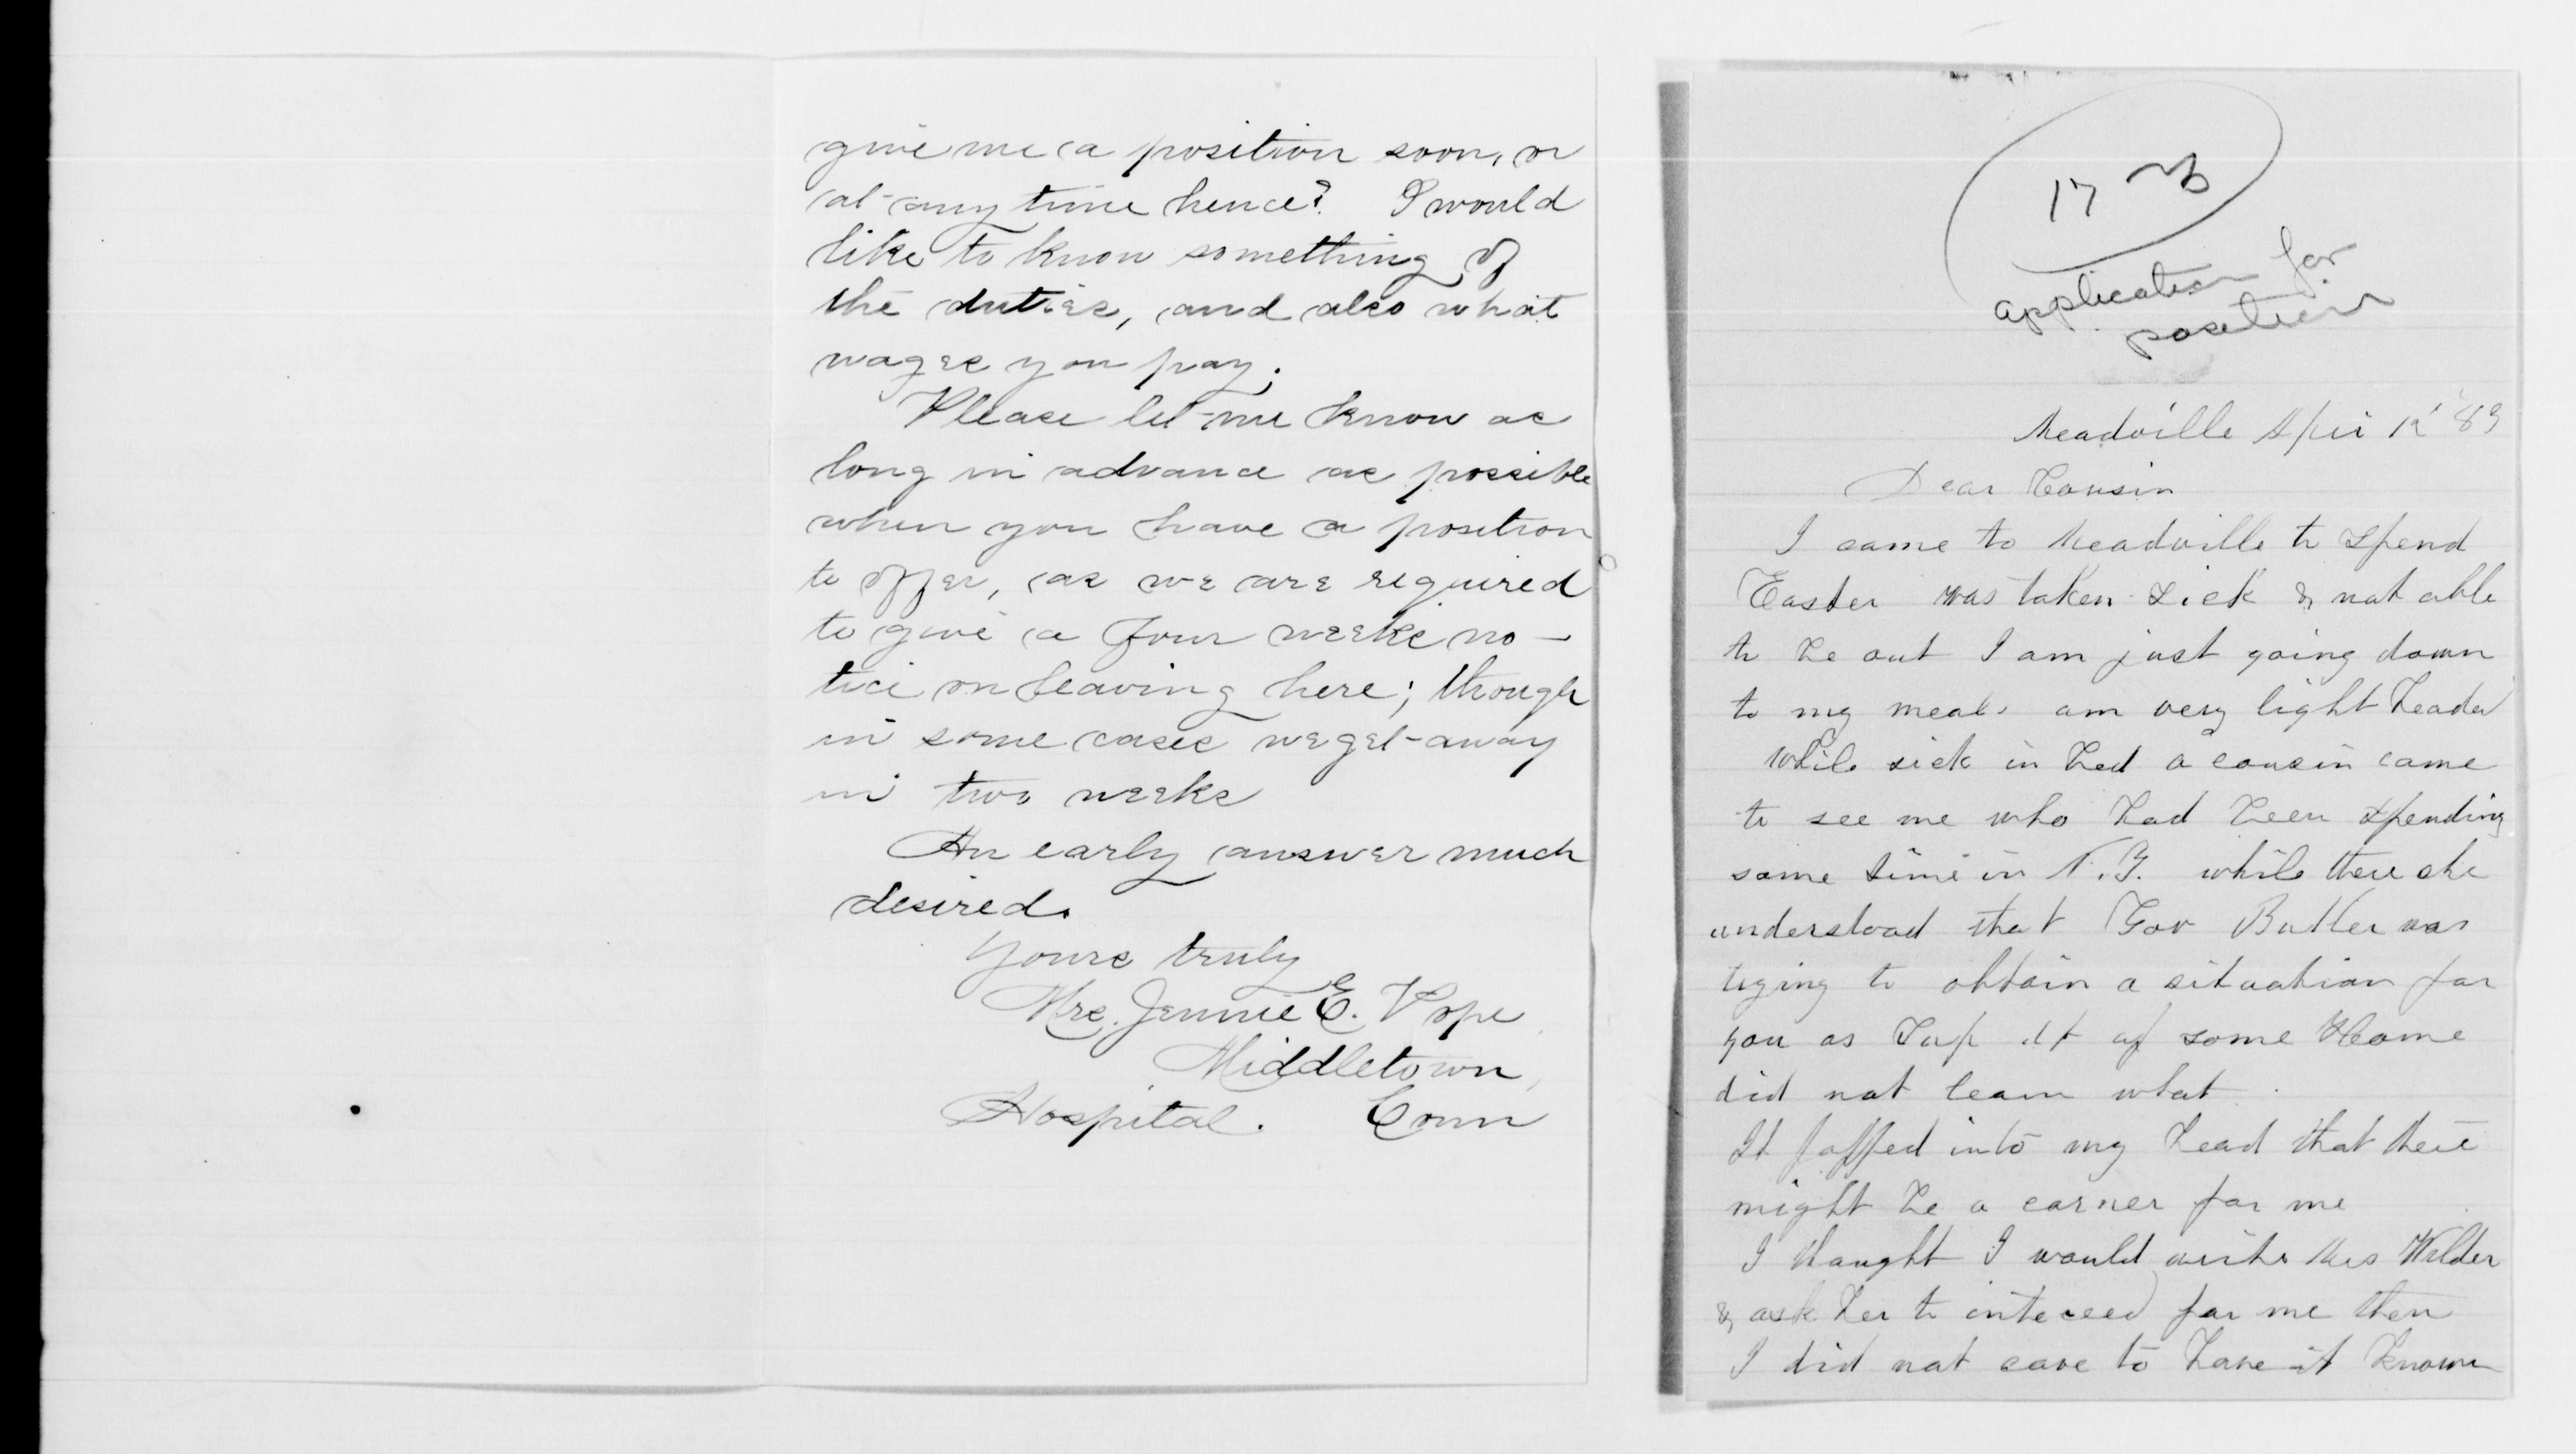 give me a position soon, or
at any time hence? I would
like to know something of
the duties, and also what
wages you pay.
Please let me know as
long in advance as possible
when you have a position
to offer, as we are required
to give a four weeks no-
tice on leaving here; though
in some cases we get away
in two weeks
An early answer much
desired.
Yours truly
Mrs. Jennie E. Pope
Middletown,
Hospital. Conn
17
application for
position
Meadville Apr 12 '83
Dear Cousin
I came to Meadville to spend
Easter was taken sick & not able
to be out I am just going down
to my meals am very light headed
while sick in bed a cousin came
to see me who had been spending
some time in N.Y. while there she
understood that Gov Butler was
trying to obtain a situation for
you as Sup dt of some Home
did not learn what
It popped into my head that there
might be a corner for me
I thought I would write Mrs Wilder
& ask her to interceed for me then
I did not care to have it known